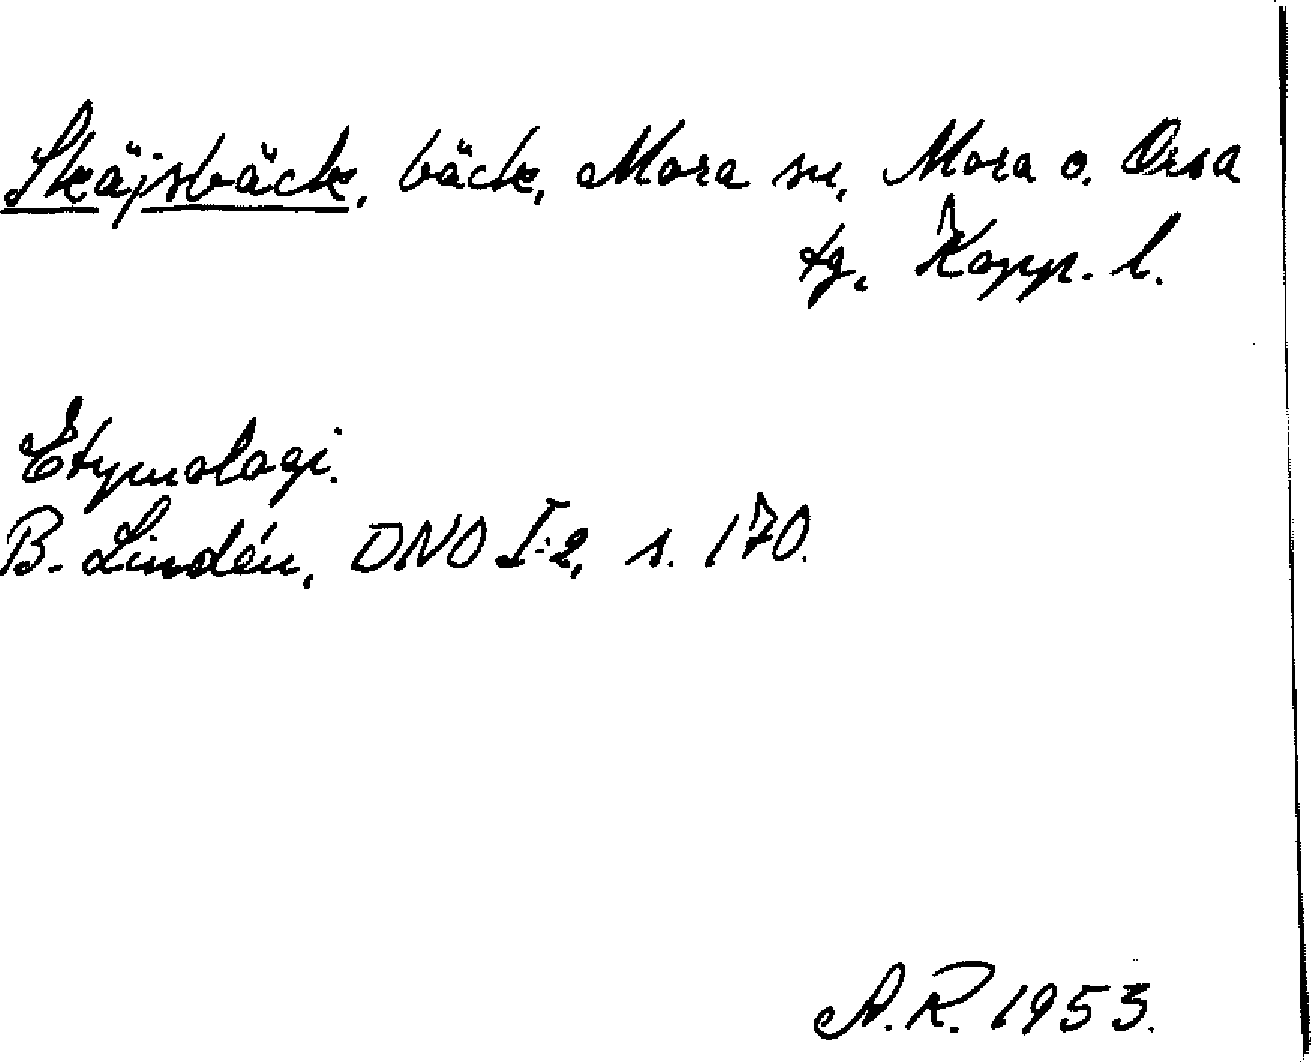 Skäjsbäck, bäck, Mora sn, Mora o. Orsa
tg, Kopp. l.
Etymologi.
B. Lindén, DNO I:2, s. 170.
A.R. 1953.